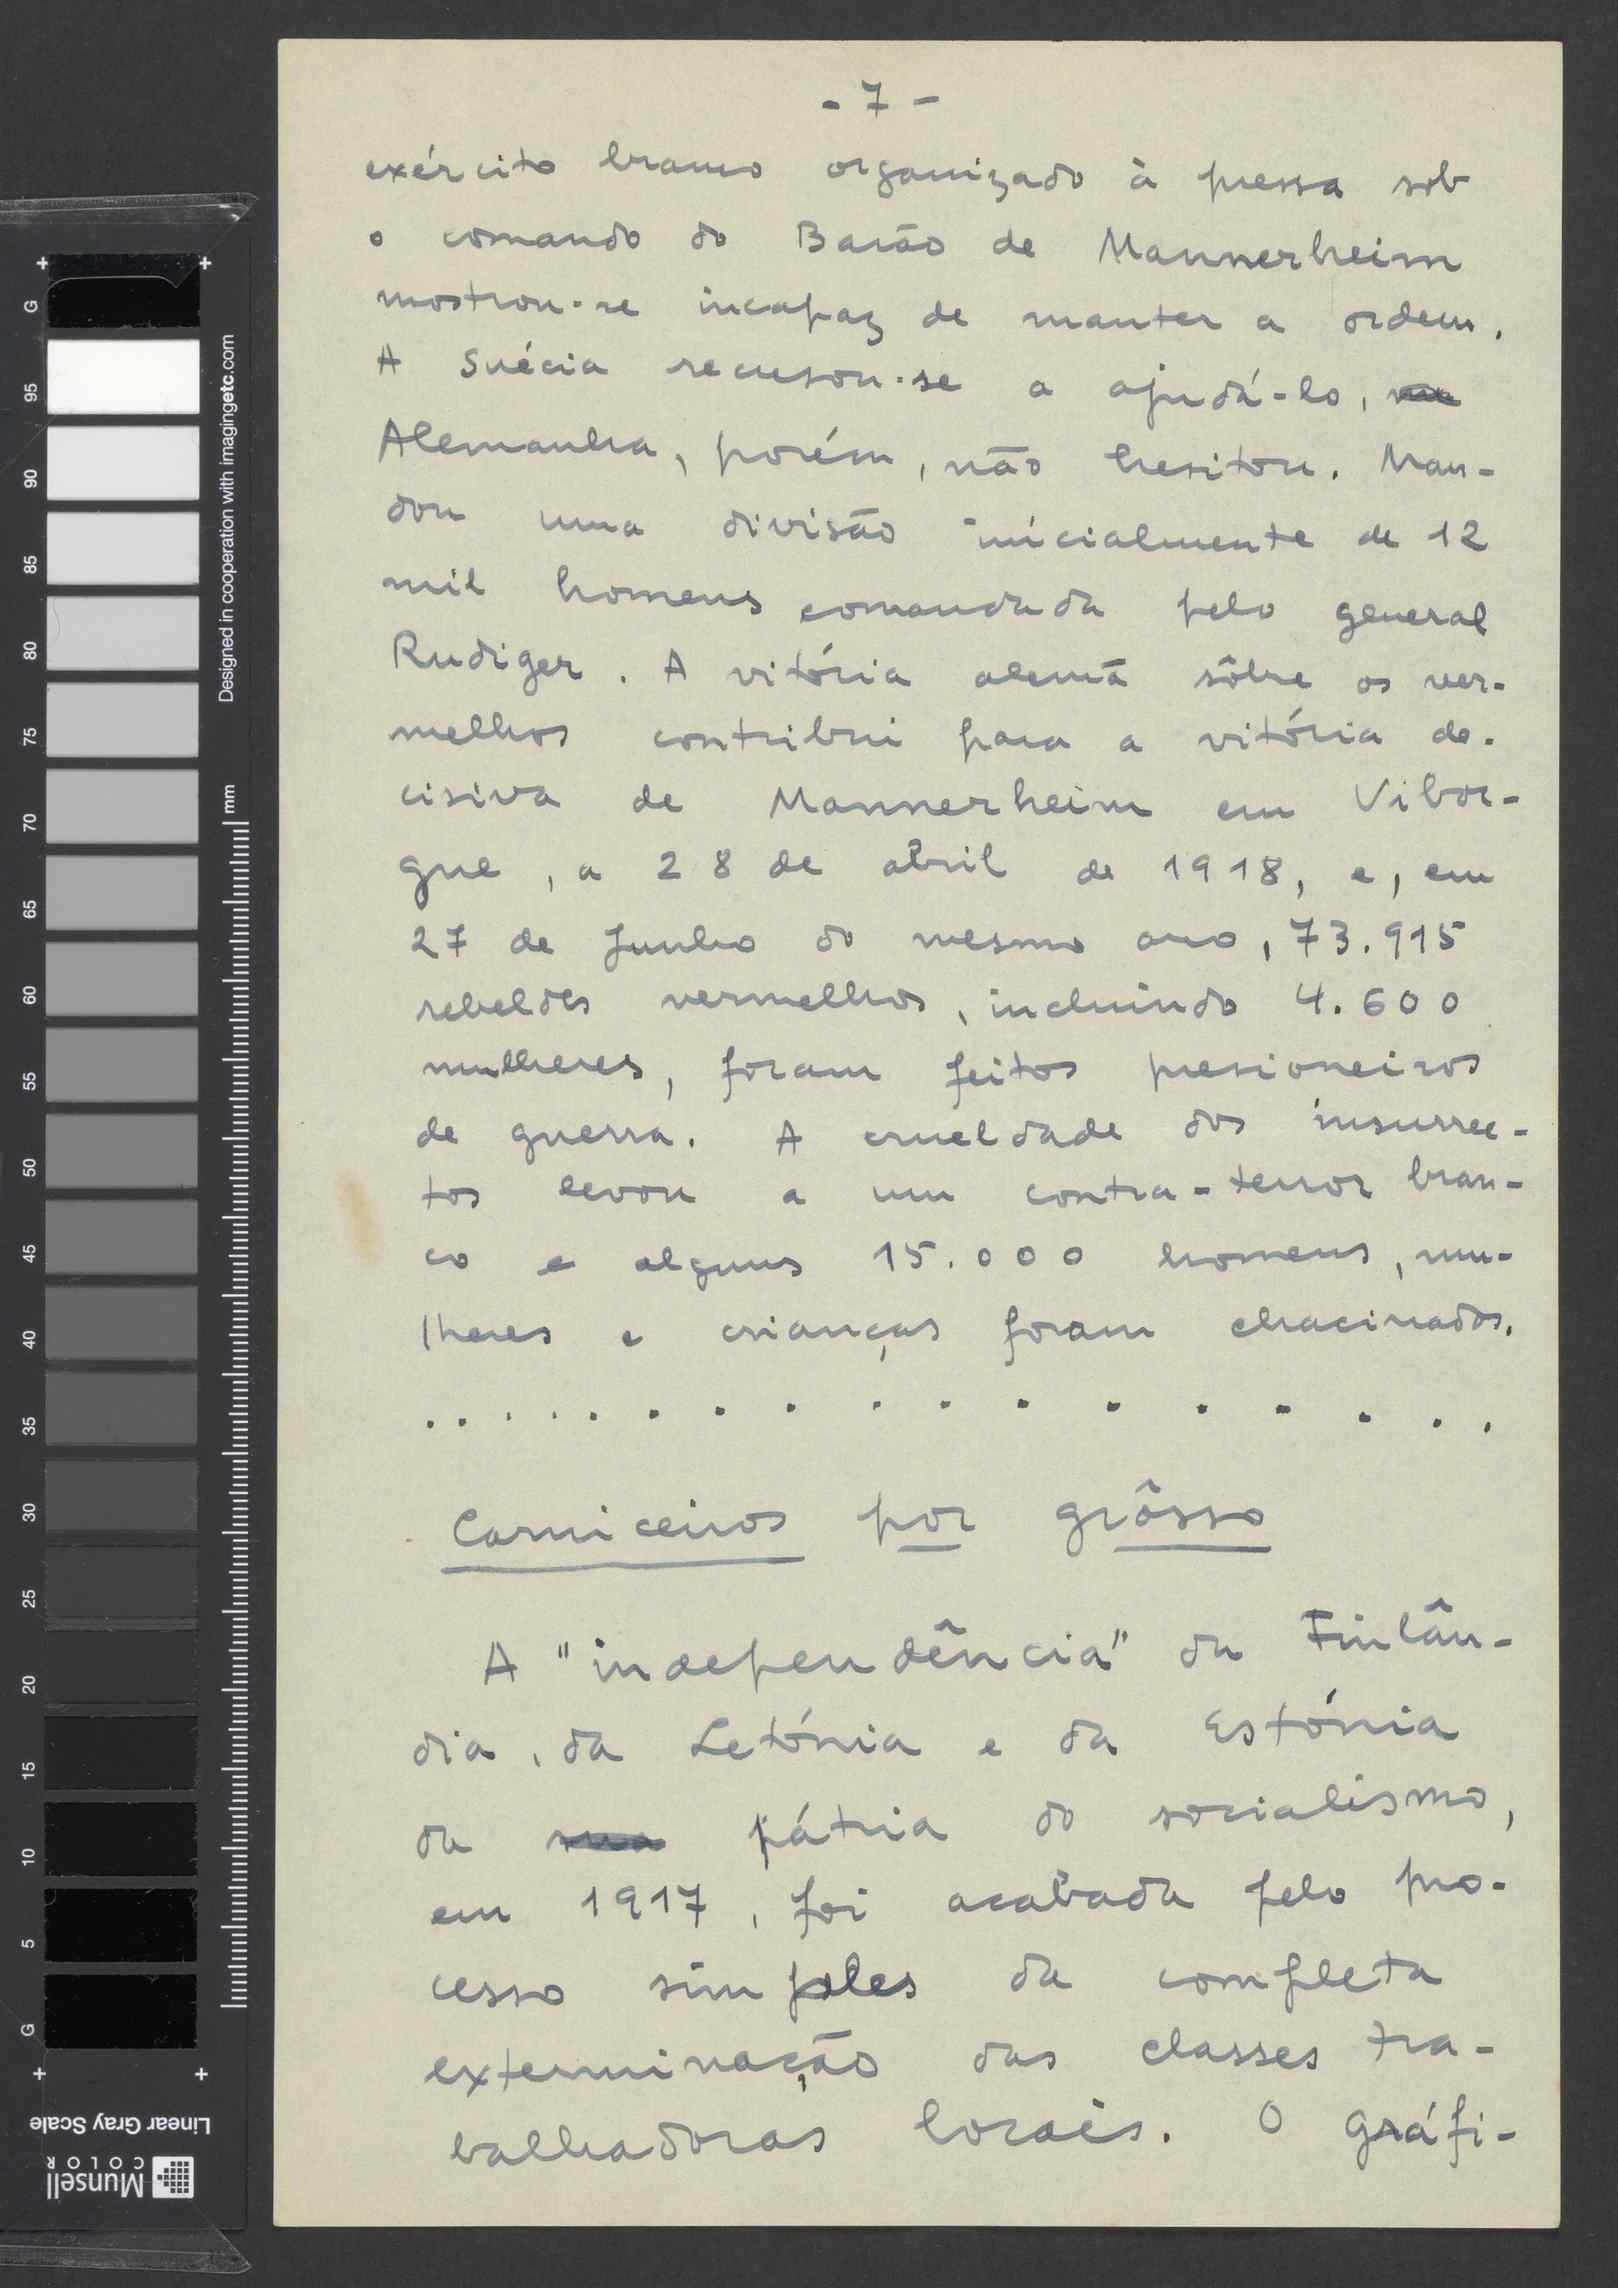 - 7 -
exército branco organizado à pressa sob
o comando do Barão de Mannerheim
mostrou-se incapaz de manter a ordem.
A Suécia recusou-se a ajudá-lo,
Alemanha, porém, não hesitou. Man-
dou uma divisão inicialmente de 12
mil homens comandada pelo general
Rudiger. A vitória alemã sôbre os ver-
melhos contribui para a vitória de-
cisiva de Mannerheim em Vibor-
gue, a 28 de abril de 1918, e, em
27 de Junho do mesmo ano, 73.915
rebeldes vermelhos, incluindo 4.600
mulheres, foram feitos presioneiros
de guerra. A crueldade dos insurrec-
tos levou a um contra-terror bran-
co e alguns 15.000 homens, mu-
lheres e crianças foram chacinados.
. . . . . . . . . . . . . . . . . .
Carniceiros por grôsso
A "independência" da Finlân-
dia, da Letónia e da Estónia
da sua pátria do socialismo,
em 1917, foi acabada pelo pro-
cesso simples da completa
exterminação das classes tra-
balhadoras locais. O gráfi-
G 95 90 85 80 75 70 65 60 55 50 45 40 35 30 25 20 15 10 5 G
mm
Designed in cooperation with imagingetc.com
Linear Gray Scale
Munsell
COLOR